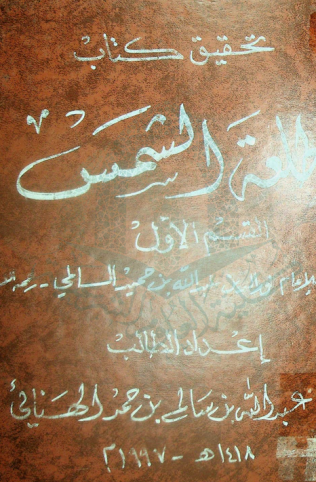 تحقيق كتاب
طلعة الشمس
القسم الأول
للإمام نور الدين عبدالله بن حميد السالمي - رحمه الله
إعداد الطالب
عبدالله بن سالم بن حمد الهنائي
١٤١٨هـ - ١٩٩٧م